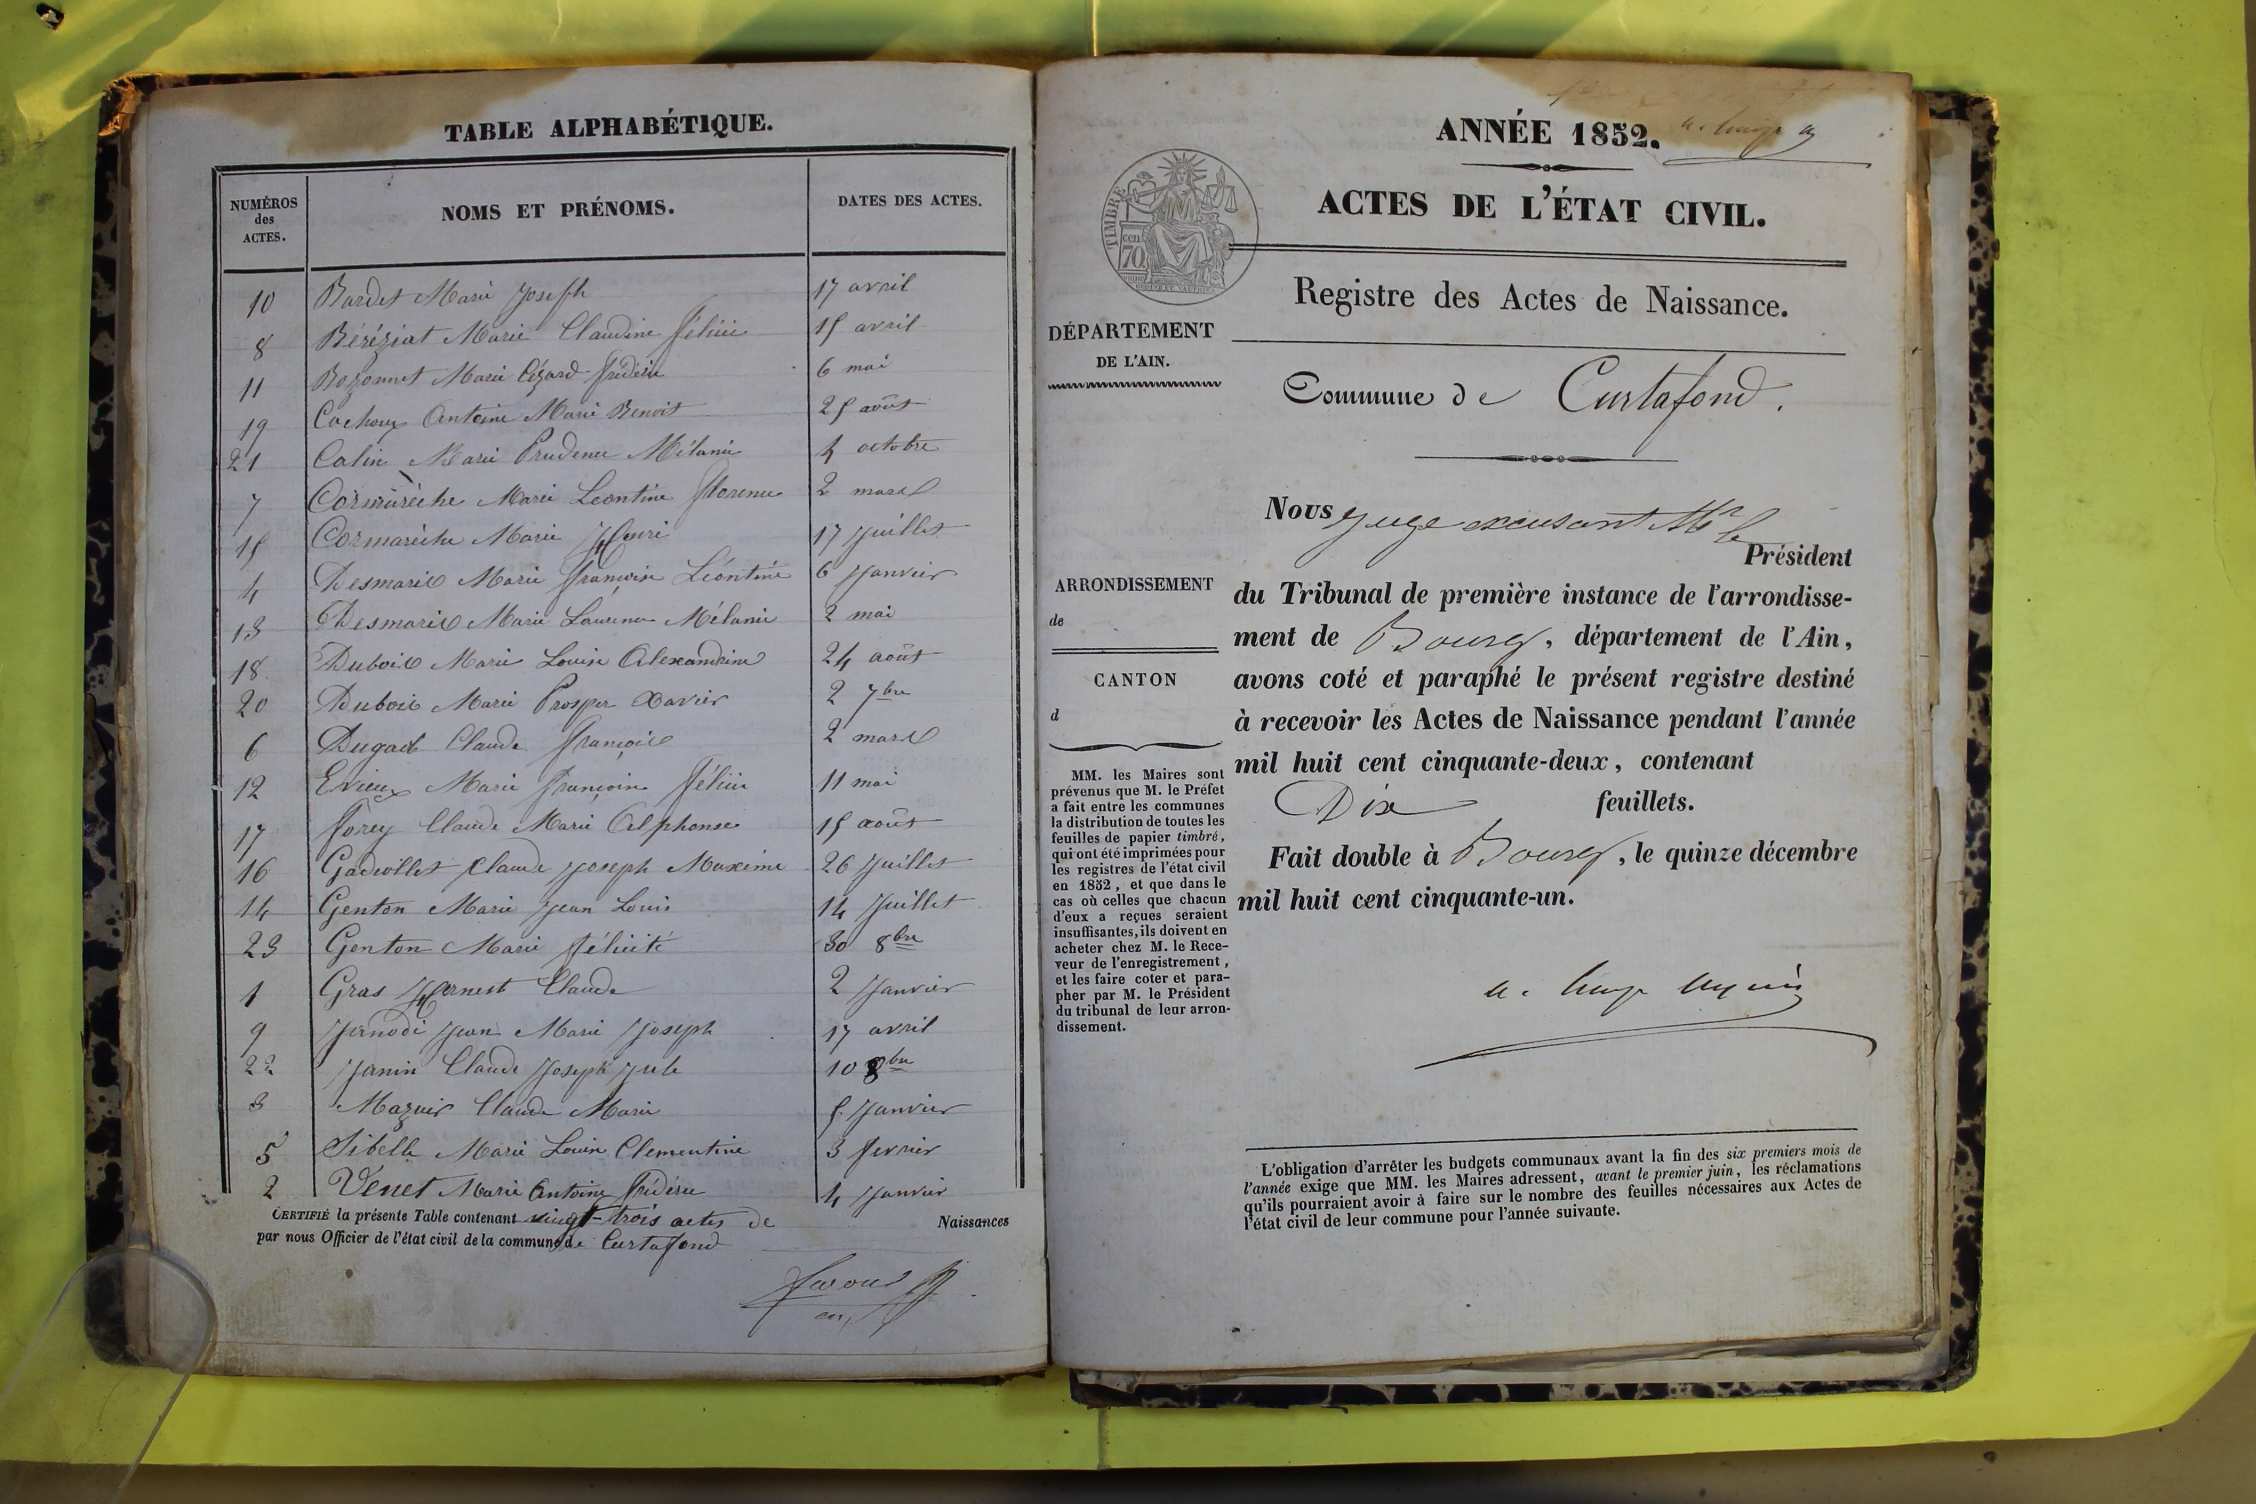 TABLE ALPHABÉTIQUE.
NUMÉROS des ACTES. NOMS ET PRÉNOMS. DATES DES ACTES.
10 Bardet Marie Joseph 17 avril
8 Béréziat Marie Claudine Félicie 15 avril
11 Bozonnet Marie Cézard Frédéric 6 mai
19 Cochoux Antoine Marie Benoit 25 août
21 Colin Marie Prudence Mélanie 4 octobre
7 Cormarèche Marie Léontine Florence 2 mars
15 Cormarèche Marie Henri 17 Juillet
4 Desmaris Marie Françoise Léontine 6 Janvier
13 Desmaris Marie Laurence Mélanie 2 mai
18 Dubois Marie Louise Alexandrine 24 août
20 Dubois Marie Prosper Xavier 2 7bre
6 Dugad Claude François 2 mars
12 Evieux Marie Françoise Félicie 11 mai
17 Forey Claude Marie Alphonse 15 août
16 Gadiollet Claude Joseph Maxime 26 Juillet
14 Genton Marie Jean Louis 14 Juillet
23 Genton Marie Félicité 30 8bre
1 Gras Hernest Claude 2 Janvier
9 Janodi Jean Marie Joseph 17 avril
22 Janin Claude Joseph Jule 10 8bre
3 Mazuir Claude Marie 5 Janvier
5 Sibelle Marie Louise Clementine 3 fevrier
2 Venet Marie Antoine Frédéric 4 Janvier
CERTIFIÉ la présente Table contenant vingt-trois actes de Naissances
par nous Officier de l'état civil de la commune de Curtafond
ANNÉE 1852.
ACTES DE L'ÉTAT CIVIL.
TIMBRE
70 cen
Registre des Actes de Naissance.
DÉPARTEMENT
DE L'AIN.
Commune de Curtafond.
Nous Juge excusant Mr le
Président
ARRONDISSEMENT
de
CANTON
d
du Tribunal de première instance de l'arrondisse-
ment de Bourg, département de l'Ain,
avons coté et paraphé le présent registre destiné
à recevoir les Actes de Naissance pendant l'année
mil huit cent cinquante-deux, contenant
Dix feuillets.
Fait double à Bourg, le quinze décembre
mil huit cent cinquante-un.
MM. les Maires sont
prévenus que M. le Préfet
a fait entre les communes
la distribution de toutes les
feuilles de papier timbré,
qui ont été imprimées pour
les registres de l'état civil
en 1852, et que dans le
cas où celles que chacun
d'eux a reçues seraient
insuffisantes, ils doivent en
acheter chez M. le Rece-
veur de l'enregistrement,
et les faire coter et para-
pher par M. le Président
du tribunal de leur arron-
dissement.
L'obligation d'arrêter les budgets communaux avant la fin des six premiers mois de
l'année exige que MM. les Maires adressent, avant le premier juin, les réclamations
qu'ils pourraient avoir à faire sur le nombre des feuilles nécessaires aux Actes de
l'état civil de leur commune pour l'année suivante.